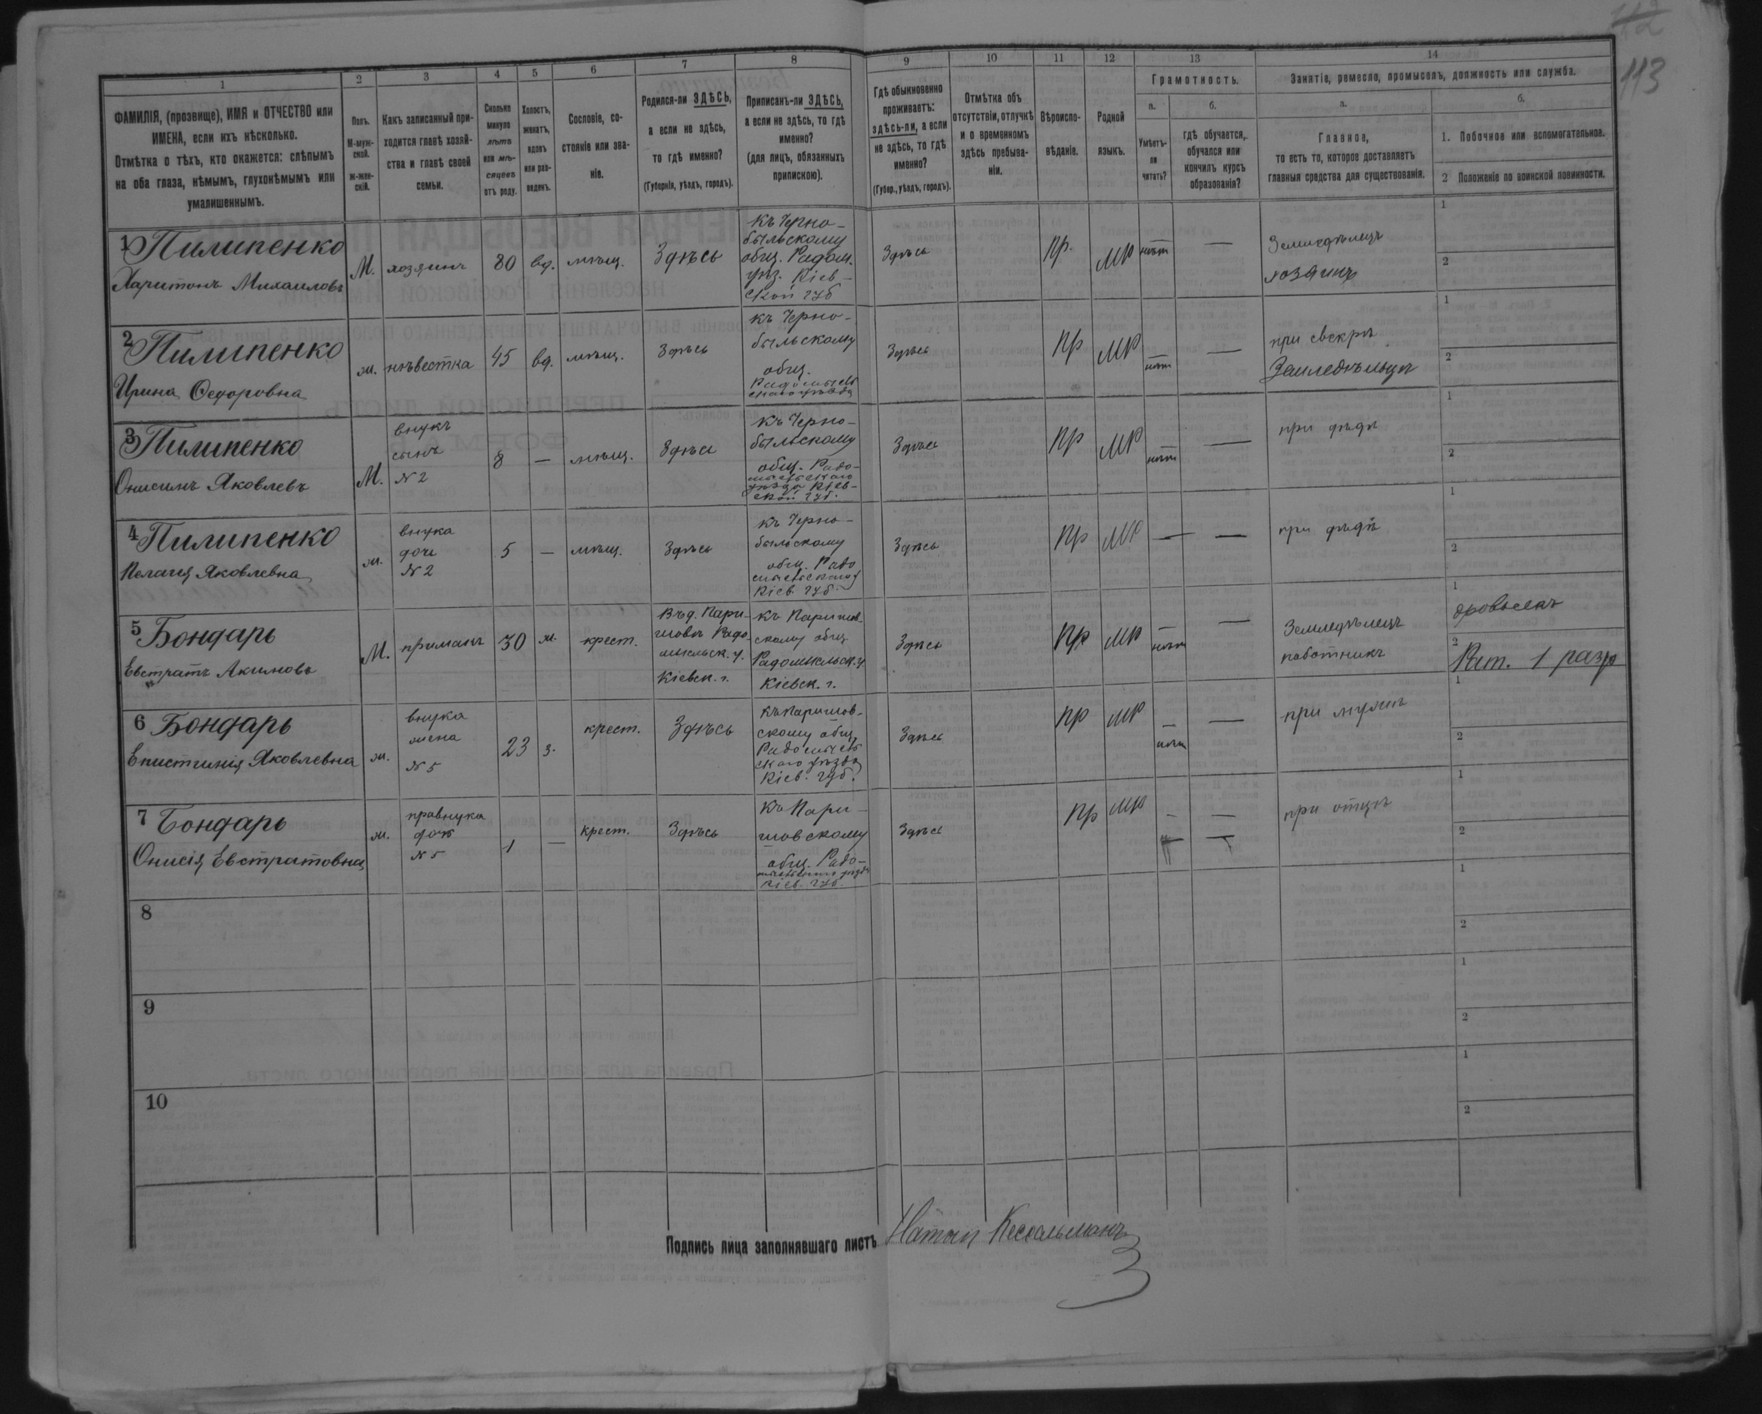 112
113
1
2
3
4
5
6
7
8
9
10
11
12
13
14
ФАМИЛІЯ, (прозвище), ИМЯ и ОТЧЕСТВО или
ИМЕНА, если ихъ нѣсколько.
Отмѣтка о тѣхъ, кто окажется: слѣпымъ
на оба глаза, нѣмымъ, глухонѣмымъ или
умалишеннымъ.
Полъ.
М-муж-
ской.
ж-жен-
скій.
Какъ записанный при-
ходится главѣ хозяй-
ства и главѣ своей
семьи.
Сколько
минуло
лѣтъ
или мѣ-
сяцевъ
отъ роду.
Холостъ,
женатъ,
вдовъ
или раз-
веденъ.
Сословіе, со-
стояніе или зва-
ніе.
Родился-ли ЗДѢСЬ,
а если не здѣсь,
то гдѣ именно?
(Губернія, уѣздъ, городъ).
Приписанъ-ли ЗДѢСЬ,
а если не здѣсь, то гдѣ
именно?
(для лицъ, обязанныхъ
припискою).
Гдѣ обыкновенно
проживаетъ:
здѣсь-ли, а если
не здѣсь, то гдѣ
именно?
(Губер., уѣздъ, городъ).
Отмѣтка объ
отсутствіи, отлучкѣ
и о временномъ
здѣсь пребыва-
ніи.
Вѣроиспо-
вѣданіе.
Родной
языкъ.
Грамотность.
а.
Умѣетъ-
ли
читать?
б.
гдѣ обучается,
обучался или
кончилъ курсъ
образованія?
Занятіе, ремесло, промыселъ, должность или служба.
а.
Главное,
то есть то, которое доставляетъ
главныя средства для существованія.
б.
1. Побочное или вспомогательное.
2 Положеніе по воинской повинности.
1 Пилипенко
Харитонъ Михаиловъ
М.
хозяинъ
80
вд.
мѣщ.
Здѣсь
Къ Черно-
быльскому
общ. Радом.
уѣз. Кіев-
ской губ
Здѣсь
Пр.
МР
нѣт
—
Земледѣлецъ
хозяинъ
1
2
2 Пилипенко
Ирина Федоровна
ж.
невѣстка
45
вд.
мѣщ.
Здѣсь
къ Черно-
быльскому
общ.
Здѣсь
Пр
МР
нѣт
—
при свекрѣ
Земледѣльцѣ
1
2
3 Пилипенко
Онисимъ Яковлевъ
М.
внукъ
сынъ
N 2
8
—
мѣщ.
Здѣсь
къ Черно-
быльскому
общ. Радо-
уѣзда Кіев-
ской губ.
Здѣсь
Пр
МР
нѣт
—
при дѣдѣ
1
2
4 Пилипенко
Пелагея Яковлевна
ж.
внука
дочь
N 2
5
—
мѣщ.
Здѣсь
къ Черно-
быльскому
общ. Радо
Кіев губ.
Здѣсь
Пр
МР
—
—
при дѣдѣ
1
2
5 Бондарь
Евстратъ Акимовъ
М.
приманъ
30
ж.
крест.
Въ д. Пари-
шовѣ Радо-
мысльск. у.
Кіевск. г.
къ Паришов-
скому общ
Радомысльск. у
Кіевск. г.
Здѣсь
Пр
МР
нѣт
—
Земледѣлецъ
работникъ
1
дровосекъ
2
Рат. 1 разр
6 Бондарь
Епистимія Яковлевна
ж.
внука
жена
N 5
23
з.
крест.
Здѣсь
къ Паришов-
скому общ
Радомысль
скаго уѣзда
Кіев. губ.
Здѣсь
Пр
МР
нѣт
—
при мужѣ
1
2
7 Бондарь
Онисія Евстратовна
ж.
правнука
дочь
N 5
1
—
крест.
Здѣсь
къ Пари-
шовскому
общ. Радо-
Кіев. губ.
Здѣсь
Пр
МР
—
—
при отцѣ
1
2
8
1
2
9
1
2
10
1
2
Подпись лица заполнявшаго листъ